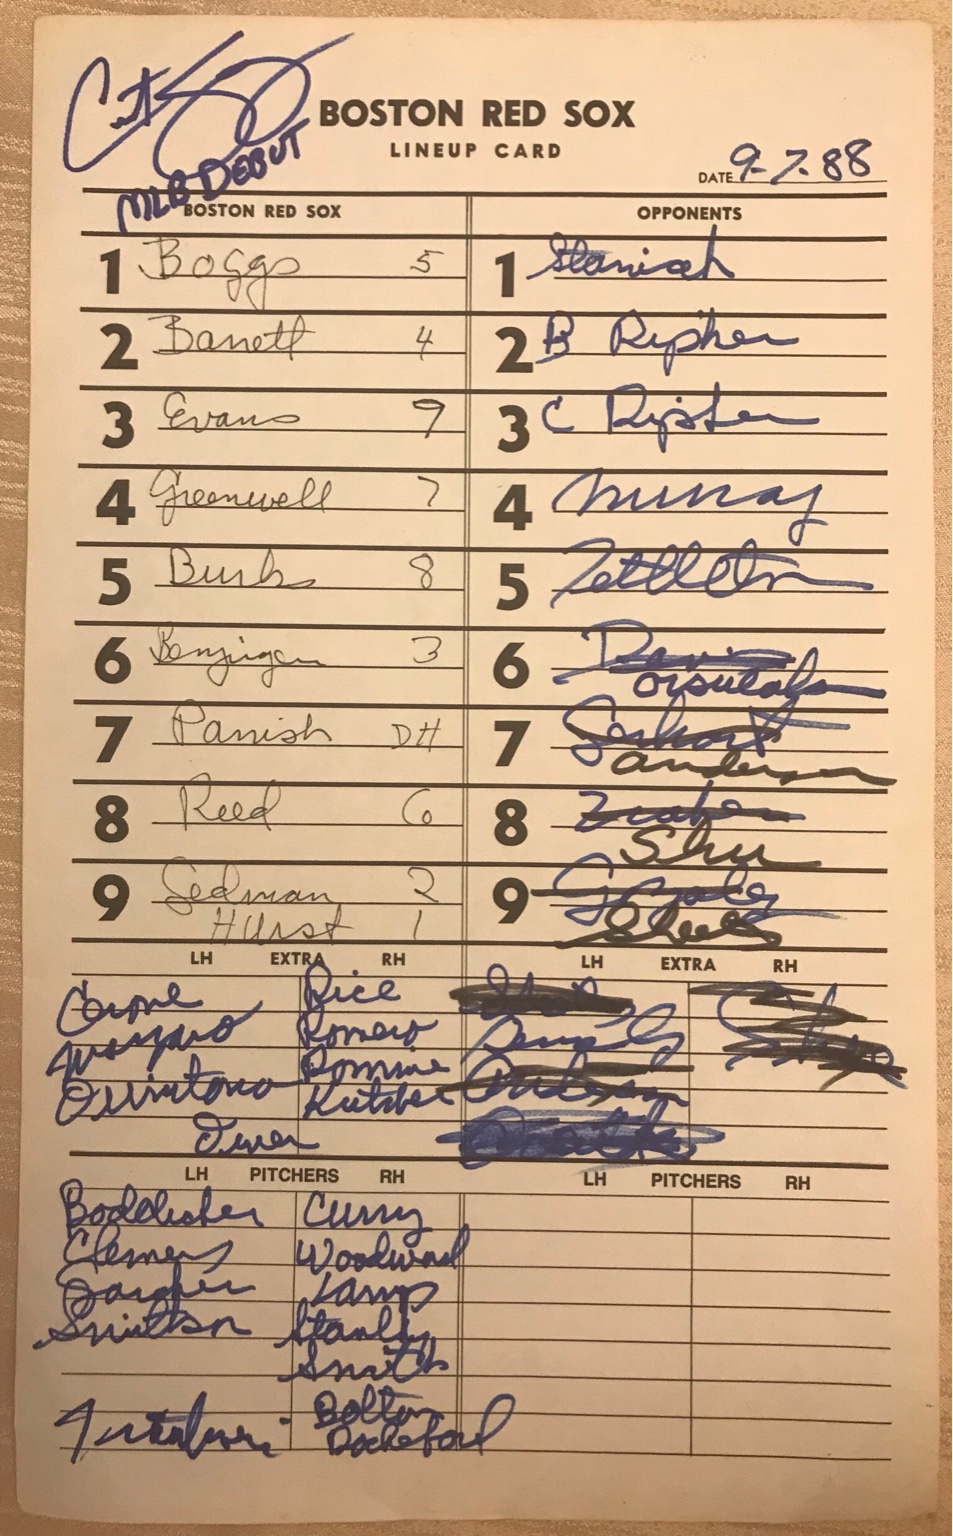 Curt
MLB DEBUT
BOSTON RED SOX
LINEUP CARD
DATE 9-7-88
BOSTON RED SOX
1 Boggs 5
2 Barrett 4
3 Evans 9
4 Greenwell 7
5 Burks 8
6 Benzinger 3
7 Parrish DH
8 Reed 6
9 Gedman 2
Hurst 1
LH EXTRA RH
Cerone Rice
Romero
Quintana Romine
Kutcher
Owen
LH PITCHERS RH
Boddicker Curry
Clemens Woodward
Gardner Lamp
Smithson Stanley
Smith
Bolton
Rocheford
OPPONENTS
1 Stanicek
2 B Ripken
3 C Ripken
4 Murray
5 Tettleton
6 Davis
Orsulak
7 Gerhart
anderson
8 Traber
Schu
9 Gonzales
Sheets
LH EXTRA RH
Dempsey
LH PITCHERS RH